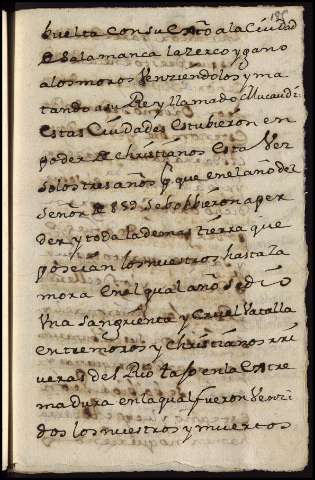 buelta con su Exto a la Ciudad
de Salamanca la zerco y gano
a los moros Venziendolos y ma
tando a su Rey llamado Mucaudi.
Estas Ciudades estubieron en
poder de christianos esta Vez
solos tres años pr que en el año del
Señor de 852 se bolbieron a per
der y toda la demas tierra que
poseian los nuestros hasta Za
mora en el qual año se dio
Una sangrienta y cruel Vatalla
entre moros y christianos Rri
veras del Rio en la Estre
madura en la qual fueron Venzi
dos los nuestros y muertos